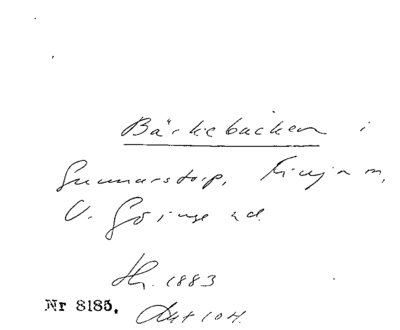 Bärkebacken i
Gunnarstorp, Finja sn,
V. Göinge hd.
Hr. 1883
Nr 8185. Akt 104.